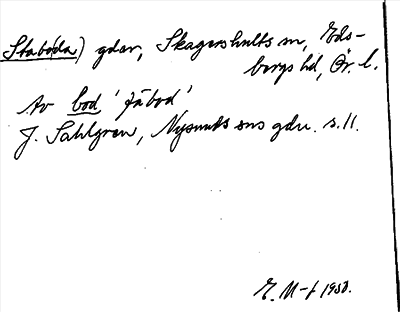 Staboda) gdar, Skagershults sn, Eds-
bergs hd, Ör. l.
Av bod 'fäbod'
J. Sahlgren, Nysunds sns gdn. s. 11.
E. M-f 1950.